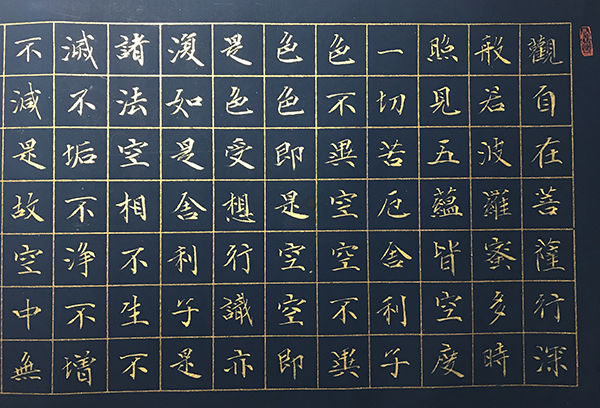 觀自在菩薩行深
般若波羅蜜多時
照見五蘊皆空度
一切苦厄舍利子
色不異空空不異
色色即是空空即
是色受想行識亦
復如是舍利子是
諸法空相不生不
滅不垢不淨不增
不減是故空中無